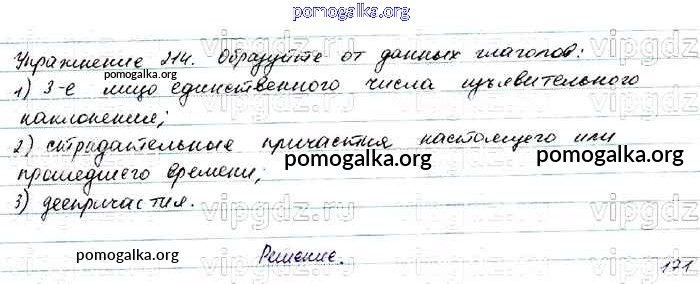 pomogalka.org
Упражнение 214. Образуйте от данных глаголов:
pomogalka.org
1) 3-е лицо единственного числа изъявительного
наклонения;
2) страдательные причастия настоящего или
pomogalka.org pomogalka.org
прошедшего времени;
3) деепричастия.
pomogalka.org
Решение.
171
vipgdz.ru